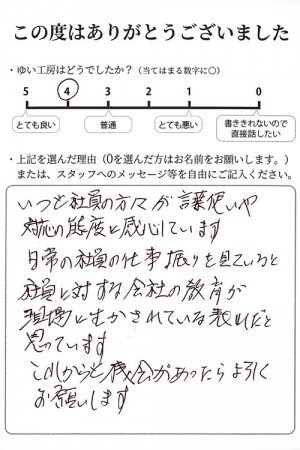 この度はありがとうございました
・ゆい工房はどうでしたか？（当てはまる数字に○）
5 4 3 2 1 0
とても良い 普通 とても悪い 書ききれないので直接話したい
・上記を選んだ理由（0を選んだ方はお名前をお願いします。）
または、スタッフへのメッセージ等を自由にご記入ください。
いつも社員の方々が言葉使いや
対応の態度に感心しています
日常の社員の仕事振りを見ていると
社員に対する会社の教育が
現場に生かされている表れだと
思っています
これからも機会があったらよろしく
お願いします